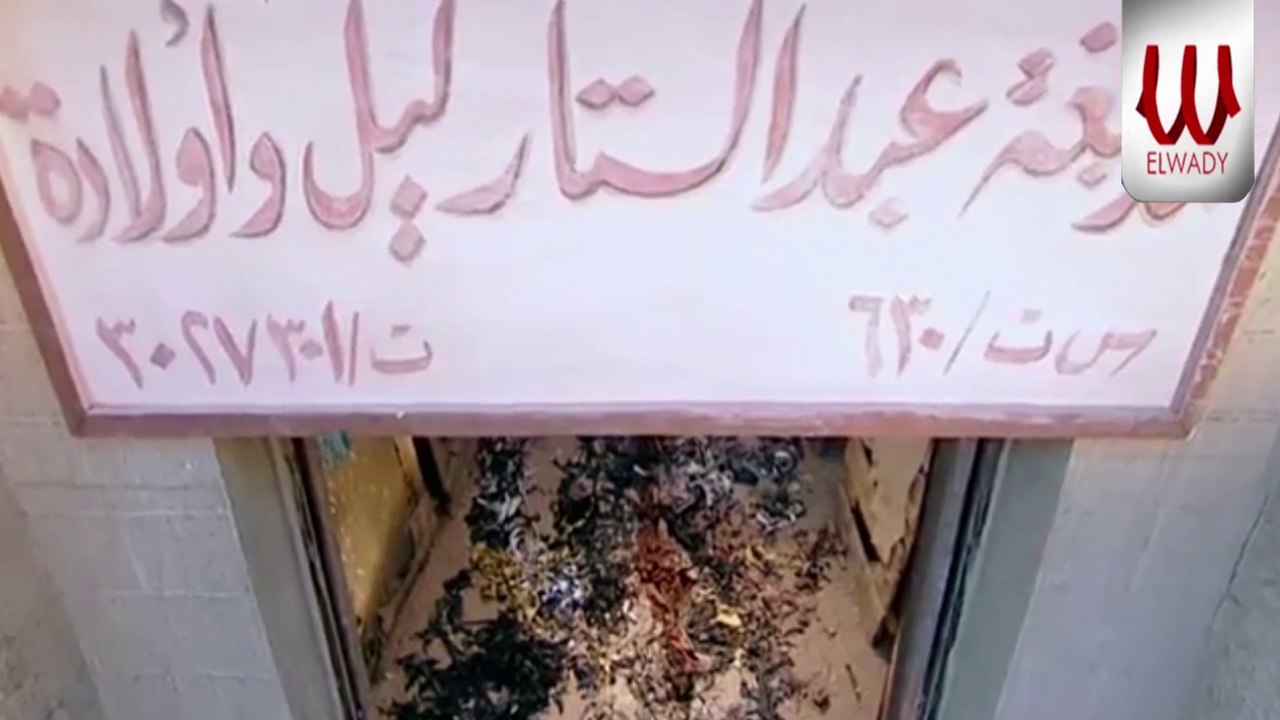 عبد الستار ليل وأولاده
ص ت / ٦٣٠
ت / ٣٠٢٧٣٠١
ELWADY